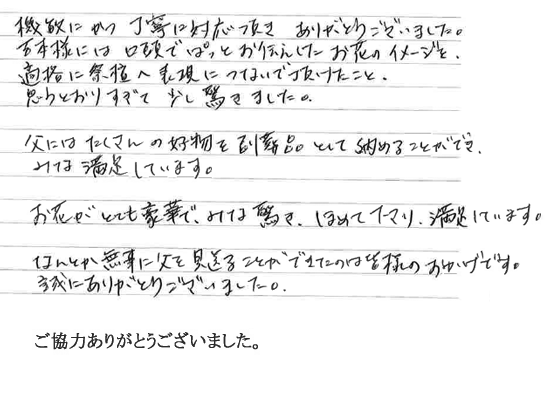 機敏にかつ丁寧に対応頂き ありがとうございました。
様には口頭でぱっとお伝えしたお花のイメージを、
適格に祭壇へ表現につないで頂けたこと、
思うとおりすぎて少し驚きました。
父にはたくさんの好物を副葬品として納めることができ、
みな満足しています。
お花がとても豪華で、みな驚き、ほめてたり、満足しています。
なんとか無事に父を見送ることができたのは皆様のおかげです。
誠にありがとうございました。
ご協力ありがとうございました。